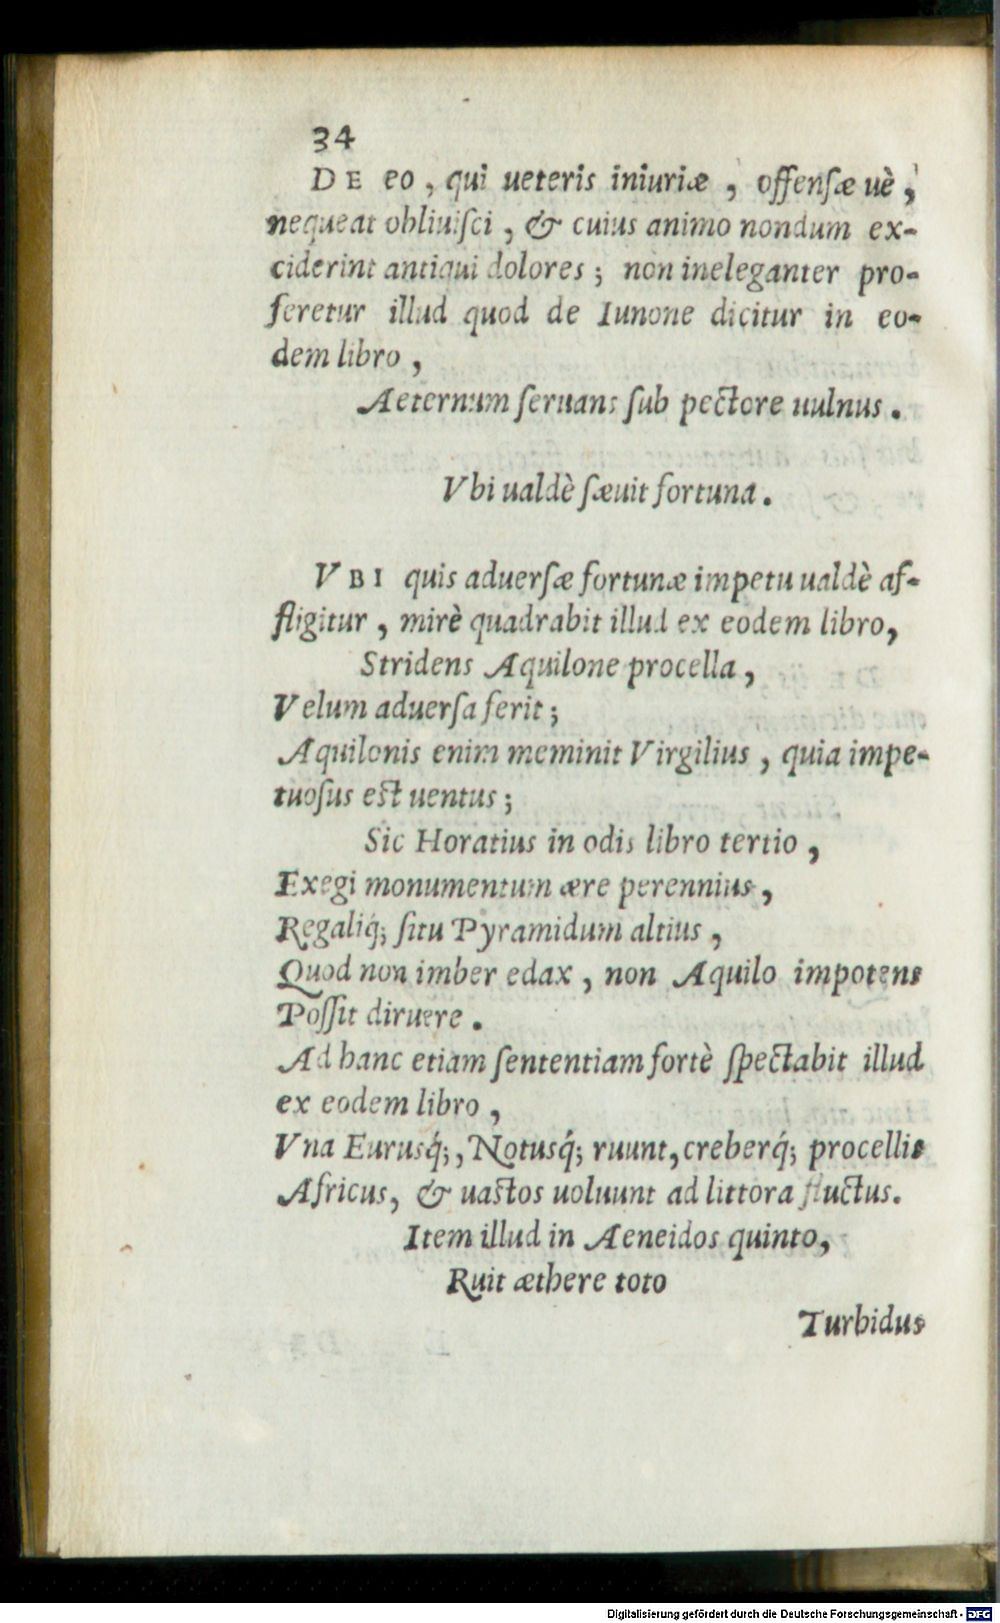 34
DE eo, qui ueteris iniuriæ, offenſæ uè,
nequeat obliuiſci, & cuius animo nondum ex-
ciderint antiqui dolores; non ineleganter pro-
feretur illud quod de Iunone dicitur in eo-
dem libro,
Aeternum ſeruans ſub pectore uulnus.
Vbi ualdè ſæuit fortuna.
VBI quis aduerſæ fortunæ impetu ualdè af-
fligitur, mirè quadrabit illud ex eodem libro,
Stridens Aquilone procella,
Velum aduerſa ferit;
Aquilonis enim meminit Virgilius, quia impe-
tuoſus est uentus;
Sic Horatius in odis libro tertio,
Exegi monumentum ære perennius,
Regaliq́; ſitu Pyramidum altius,
Quod non imber edax, non Aquilo impotens
Poſſit diruere.
Ad hanc etiam ſententiam fortè ſpectabit illud
ex eodem libro,
Vna Eurusq́;, Notusq́; ruunt, creberq́; procellis
Africus, & uastos uoluunt ad littora fluctus.
Item illud in Aeneidos quinto,
Ruit æthere toto
Turbidus
Digitalisierung gefördert durch die Deutsche Forschungsgemeinschaft - DFG